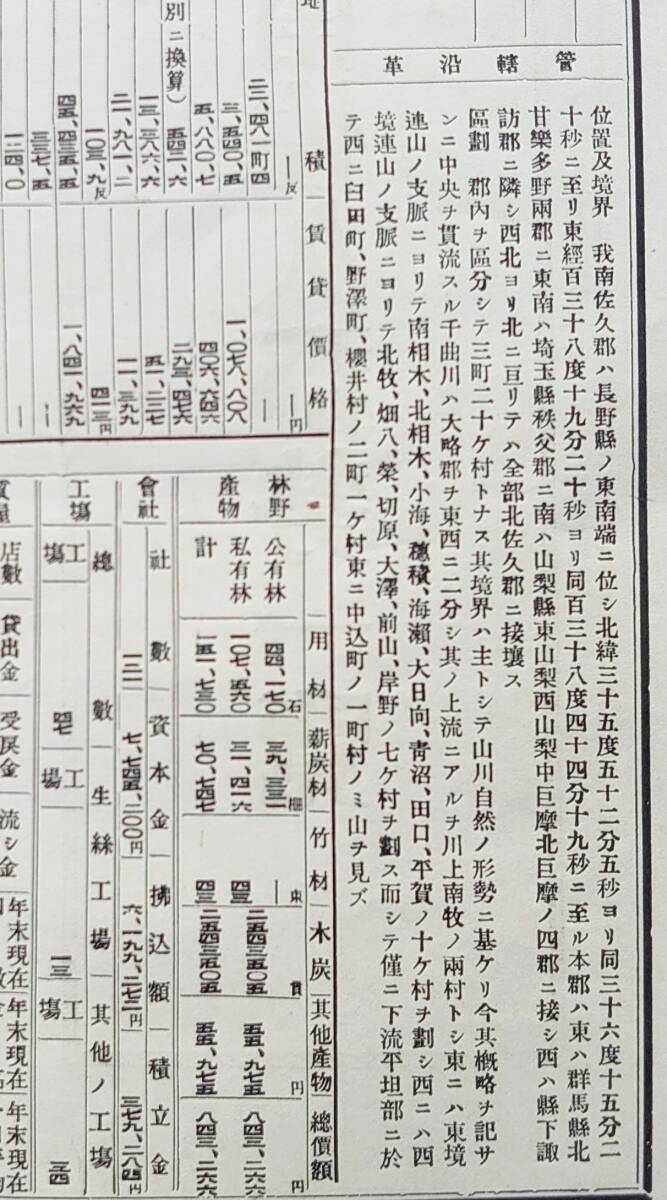 管轄沿革
位置及境界 我南佐久郡ハ長野縣ノ東南端ニ位シ北緯三十五度五十二分五秒ヨリ同三十六度十五分二
十秒ニ至リ東經百三十八度十九分二十秒ヨリ同百三十八度四十四分十九秒ニ至ル本郡ハ東ハ群馬縣北
甘樂多野兩郡ニ東南ハ埼玉縣秩父郡ニ南ハ山梨縣東山梨西山梨中巨摩北巨摩ノ四郡ニ接シ西ハ縣下諏
訪郡ニ隣シ西北ヨリ北ニ亘リテハ全部北佐久郡ニ接壤ス
區劃 郡內ヲ區分シテ三町二十ケ村トナス其境界ハ主トシテ山川自然ノ形勢ニ基ケリ今其槪略ヲ記サ
ンニ中央ヲ貫流スル千曲川ハ大略郡ヲ東西ニ二分シ其ノ上流ニアルヲ川上南牧ノ兩村トシ東ニハ東境
連山ノ支脈ニヨリテ南相木、北相木、小海、穗積、海瀨、大日向、靑沼、田口、平賀ノ十ケ村ヲ劃シ西ニハ西
境連山ノ支脈ニヨリテ北牧、畑八、榮、切原、大澤、前山、岸野ノ七ケ村ヲ劃ス而シテ僅ニ下流平坦部ニ於
テ西ニ臼田町、野澤町、櫻井村ノ二町一ケ村東ニ中込町ノ一町村ノミ山ヲ見ズ
積 賃貸價格
―反 ―円
二二、四八一町四 ―
三、五四〇、五 一、〇七八、八〇八
五、八八〇、七 四〇六、六四六
別ニ換算) 五四二、六 二九三、四七六
一三、三八六、六 五一、二二七
二一、九八一、二 一一、三九九
一〇三、九反 四一三円
四五、四三五、五 一、八四一、九六九
三三七、五 ―
一二四、〇 ―
林野產物 用材 薪炭材 竹材 木炭 其他產物 總價額
公有林 四四、一七〇石 三九、三三一棚 ―束 貫 円 円
私有林 一〇七、五六〇 三一、四一六 四三 二五四三五〇五 五五、九七五 八四三、二六六
計 一五一、七三〇 七〇、七四七 四三 二五四三五〇五 五五、九七五 八四三、二六六
會社 社數 資本金 拂込額 積立金
一三一 七、七四五、二〇〇円 六、一九九、二七二円 三七九、二八四円
工場 總數 生絲工場 其他ノ工場
工場 四七 工場 一三 工場 三四
店數 貸出金 受戾金 流シ金 年末現在 年末現在 年末現在